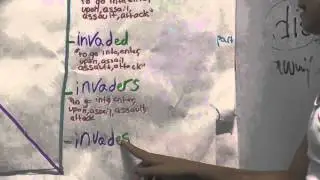 "to go into, enter,
upon, assail,
assault, attack"
- invaded
"to go into, enter,
upon, assail,
assault, attack"
- invaders
"to go into, enter,
upon, assail, assault,
attack
- invades
part
di